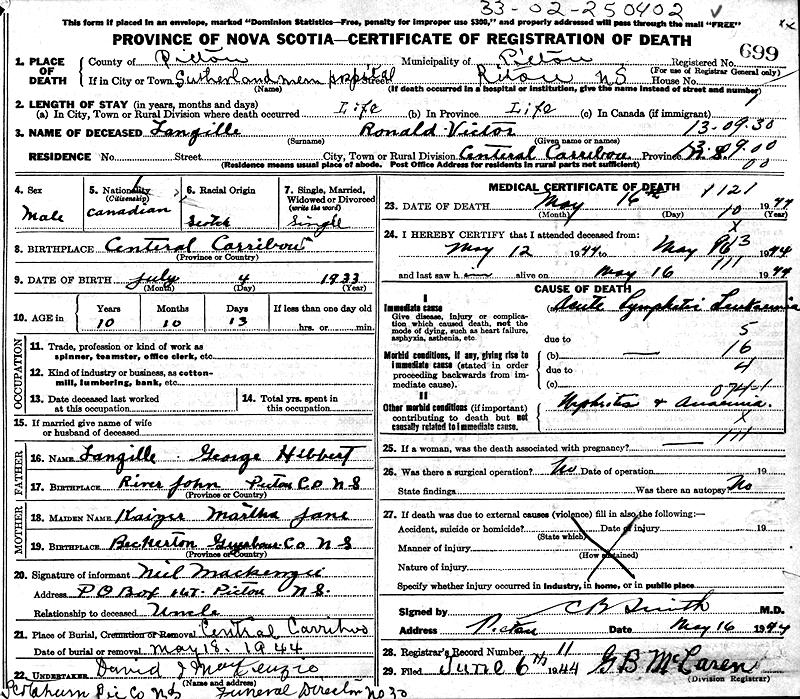 33-02-250402
This form if placed in an envelope, marked "Dominion Statistics—Free, penalty for improper use $300," and properly addressed will pass through the mail "FREE"
PROVINCE OF NOVA SCOTIA—CERTIFICATE OF REGISTRATION OF DEATH
699
1. PLACE OF DEATH
County of Pictou Municipality of Pictou Registered No.
(For use of Registrar General only)
If in City or Town Sutherland mem Hospital Pictou N S House No.
(Name) (If death occurred in a hospital or institution, give the name instead of street and number)
2. LENGTH OF STAY (in years, months and days)
(a) In City, Town or Rural Division where death occurred Life (b) In Province Life (c) In Canada (if immigrant)
3. NAME OF DECEASED Langille Ronald Victor 13-09.30
(Surname) (Given name or names)
RESIDENCE No. Street City, Town or Rural Division Centeral Carribou Province N.S.
(Residence means usual place of abode. Post Office Address for residents in rural parts not sufficient) 00
4. Sex
Male
5. Nationality
(Citizenship)
Canadian
6. Racial Origin
Scotch
7. Single, Married, Widowed or Divorced
(write the word)
Singel
8. BIRTHPLACE Centeral Carribou
(Province or Country)
9. DATE OF BIRTH July 4 1933
(Month) (Day) (Year)
10. AGE in
Years Months Days If less than one day old
10 10 13 hrs. or min.
OCCUPATION
11. Trade, profession or kind of work as spinner, teamster, office clerk, etc.
12. Kind of industry or business, as cotton-mill, lumbering, bank, etc.
13. Date deceased last worked at this occupation
14. Total yrs. spent in this occupation
15. If married give name of wife or husband of deceased
FATHER
16. NAME Langille George Hibbert
17. BIRTHPLACE River John Pictou Co N S
(Province or Country)
MOTHER
18. MAIDEN NAME Kaizer Martha Jane
19. BIRTHPLACE Beckerton Guysboro Co N S
(Province or Country)
20. Signature of informant Neil Mackenzie
Address P O Box Pictou N S.
Relationship to deceased Uncle
21. Place of Burial, Cremation or Removal Central Carribou
Date of burial or removal May 18, 1944
22. UNDERTAKER David J MacKenzie
(Name and address)
Pic Co N S Funeral Director No 30
MEDICAL CERTIFICATE OF DEATH 1121
23. DATE OF DEATH May 16th 1944
(Month) (Day) 10 (Year)
24. I HEREBY CERTIFY that I attended deceased from: X
May 12 1944 to May 1944
and last saw h im alive on May 16 1944
CAUSE OF DEATH
I
Immediate cause
Give disease, injury or complication which caused death, not the mode of dying, such as heart failure, asphyxia, asthenia, etc.
Acute Lymphatic Leukaemia
5
due to
16
Morbid conditions, if any, giving rise to immediate cause (stated in order proceeding backwards from immediate cause).
(b)
4
due to
(c) 074-1
II
Other morbid conditions (if important) contributing to death but not causally related to immediate cause.
Nephritis & Anaemia.
X
111
25. If a woman, was the death associated with pregnancy?
26. Was there a surgical operation? No Date of operation 19
State findings Was there an autopsy? No
27. If death was due to external causes (violence) fill in also the following:—
Accident, suicide or homicide? Date of injury 19
(State which)
Manner of injury
(How sustained)
Nature of injury
Specify whether injury occurred in industry, in home, or in public place
Signed by C B Smith M.D.
Address Pictou Date May 16 1944
28. Registrar's Record Number 11
29. Filed June 6th 1944 G B McLaren
(Division Registrar)